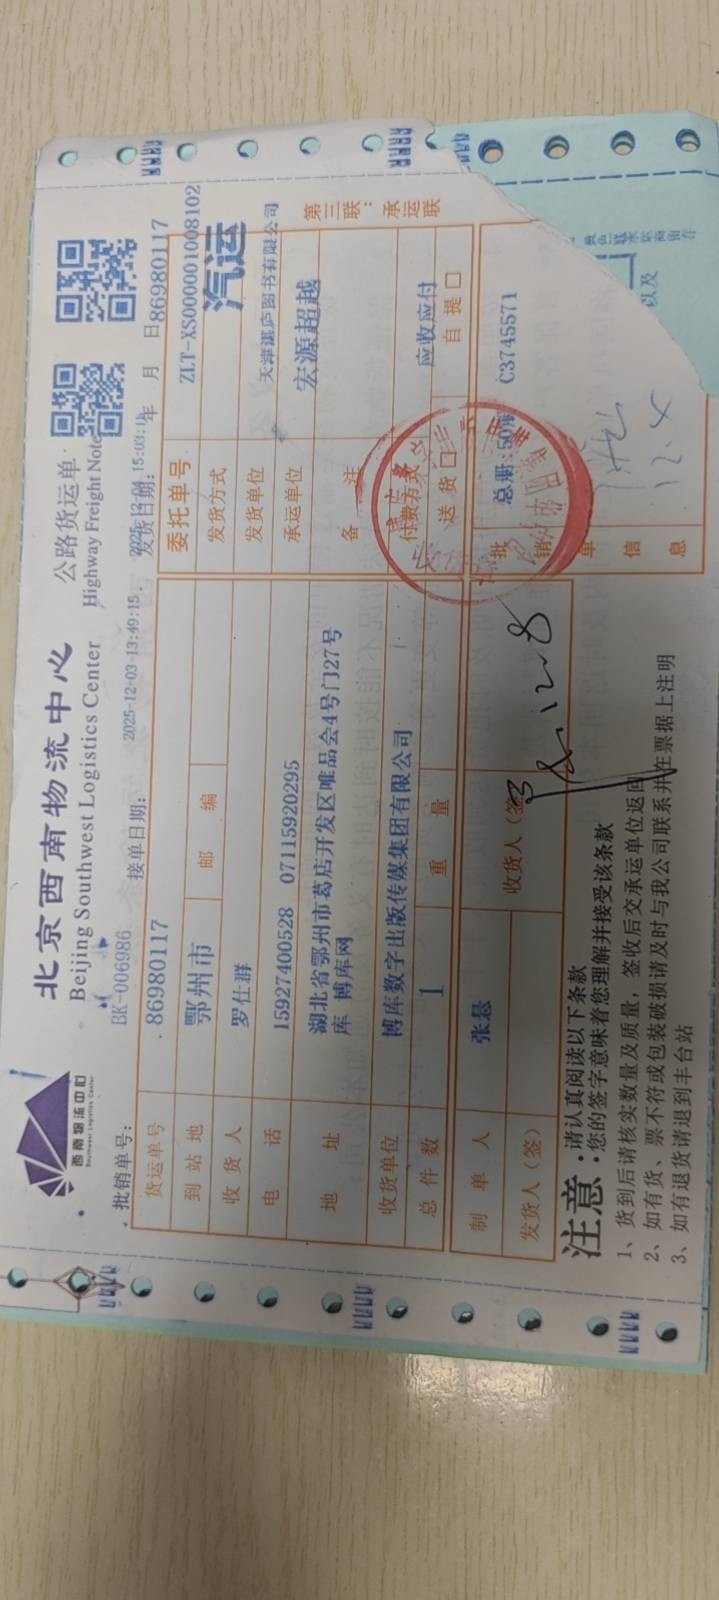 西南物流中心
Southwest Logistics Center
北京西南物流中心
Beijing Southwest Logistics Center
公路货运单
Highway Freight Note
批销单号：
BK-006986
接单日期：
2025-12-03-13:49:15
发货日期：
15:03:1
年 月 日
86980117
货运单号
86980117
委托单号
ZLT-XS000001008102
到站地
鄂州市
邮编
发货方式
汽运
收货人
罗仕群
发货单位
天津湛庐图书有限公司
电话
15927400528 07115920295
承运单位
宏源超越
地址
湖北省鄂州市葛店开发区唯品会4号门27号
库 博库网
备注
收货单位
博库数字出版传媒集团有限公司
付费方式
应收应付
总件数
1
重量
送货□
自提□
制单人
张悬
收货人（签
12.8
发货人（签）
批销单信息
总册:50册
C3745571
12.4
第三联：承运联
注意：
请认真阅读以下条款
您的签字意味着您理解并接受该条款
1、货到后请核实数量及质量，签收后交承运单位返回
2、如有货、票不符或包装破损请及时与我公司联系并在票据上注明
3、如有退货请退到丰台站
以及